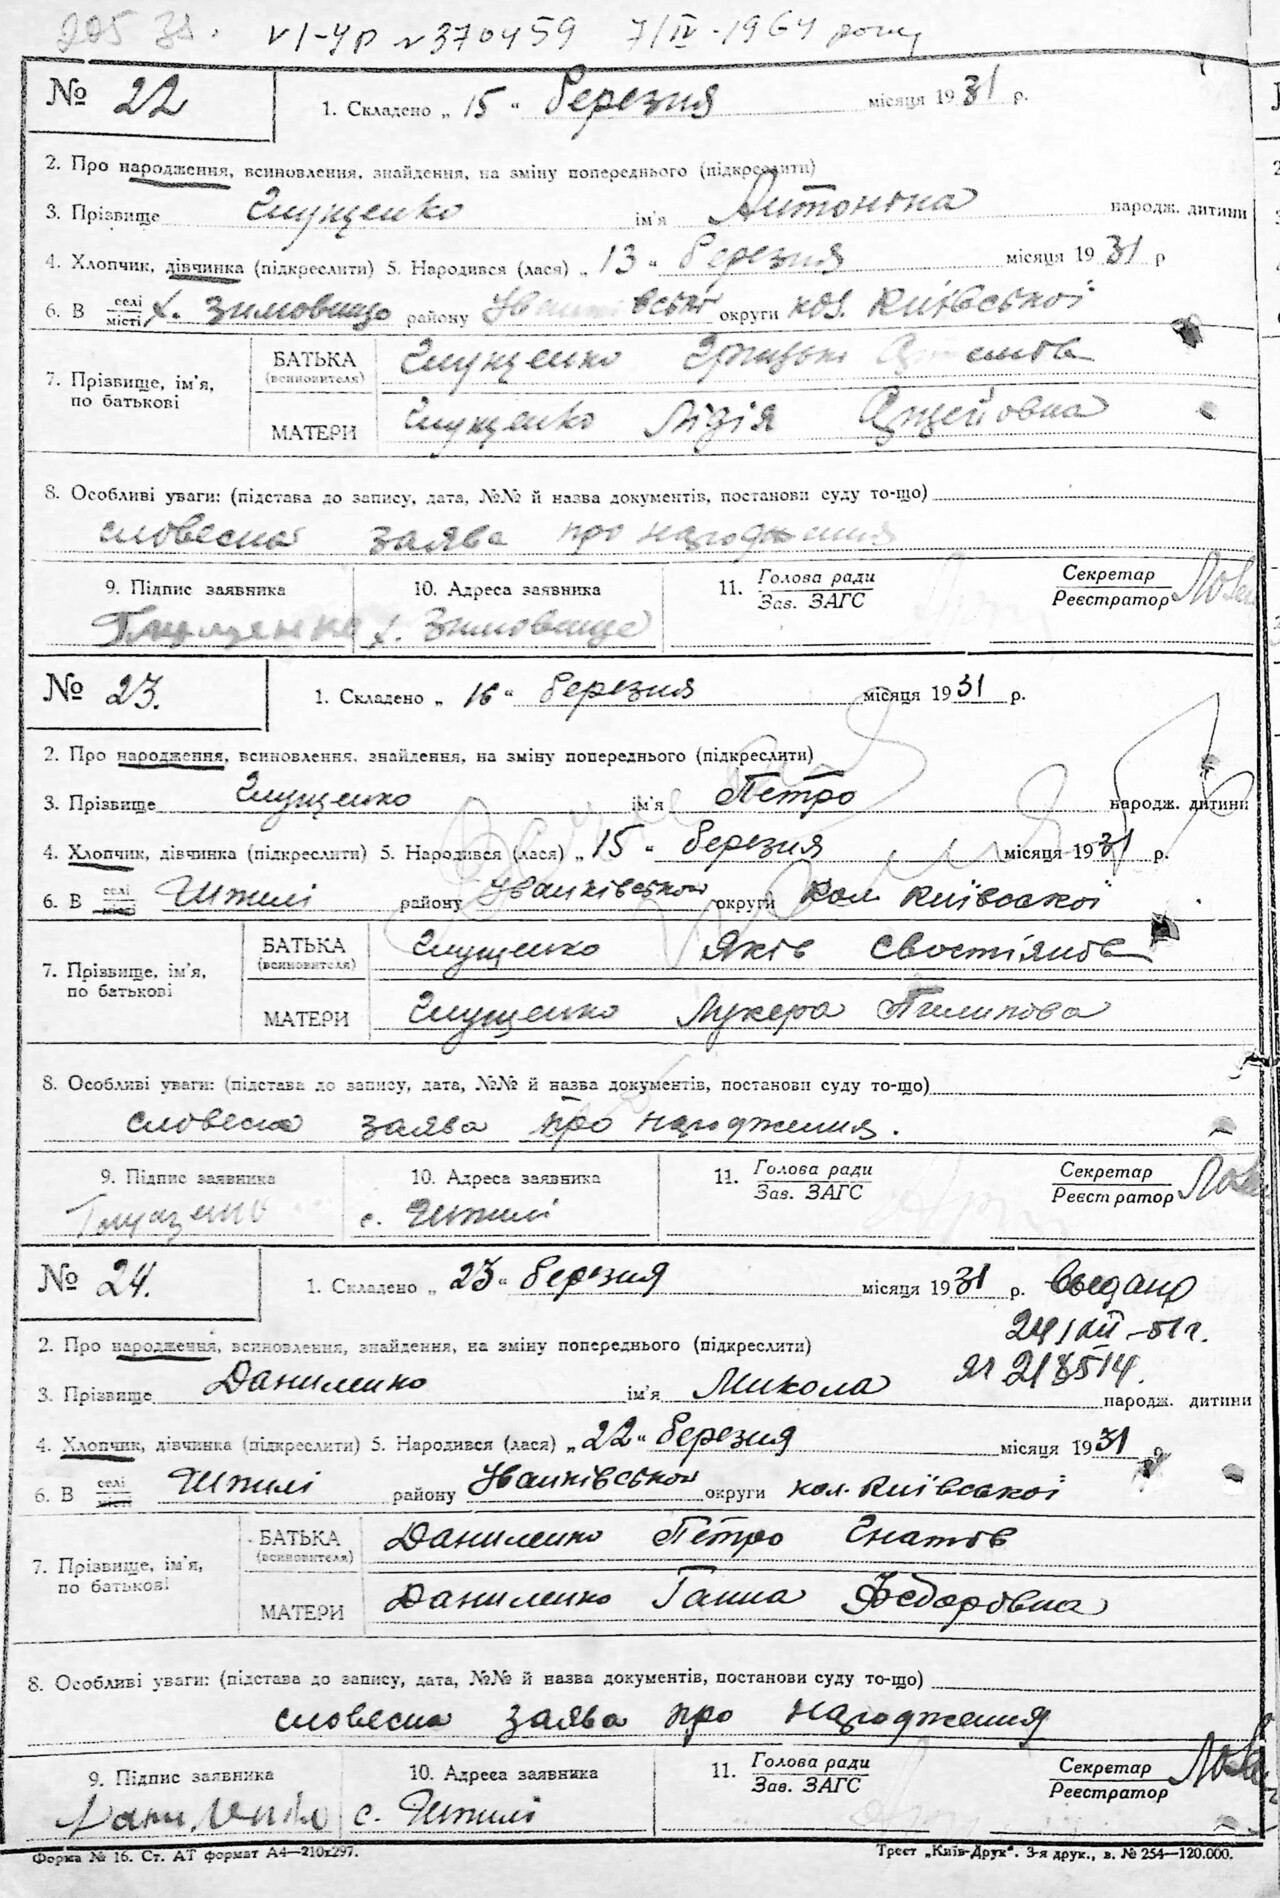 VI-УР №370459 7/IV-1964 року
№ 22
1. Складено „ 15 “ березня місяця 1931 р.
2. Про народження, всиновлення, знайдення, на зміну попереднього (підкреслити)
3. Прізвище Глущенко ім'я Антоніна народж. дитини
4. Хлопчик, дівчинка (підкреслити) 5. Народився (лася) „ 13 “ березня місяця 1931 р
6. В селі місті х. Зимовище району округи кол. Київської
7. Прізвище, ім'я, по батькові
БАТЬКА (всиновителя) Глущенко
МАТЕРИ Глущенко Лідія
8. Особливі уваги: (підстава до запису, дата, №№ й назва документів, постанови суду то-що)
словесна заява про народження
9. Підпис заявника 10. Адреса заявника 11. Голова ради Зав. ЗАГС Секретар Реєстратор
Глущенко х. Зимовище
№ 23.
1. Складено „ 16 “ березня місяця 1931 р.
2. Про народження, всиновлення, знайдення, на зміну попереднього (підкреслити)
3. Прізвище Глущенко ім'я Петро народж. дитини
4. Хлопчик, дівчинка (підкреслити) 5. Народився (лася) „ 15 “ березня місяця 1931 р.
6. В селі місті Штилі району Іванківськом округи Кол. Київської
7. Прізвище, ім'я, по батькові
БАТЬКА (всиновителя) Глущенко Яків Свостіянов
МАТЕРИ Глущенко Лукера Пилипова
8. Особливі уваги: (підстава до запису, дата, №№ й назва документів, постанови суду то-що)
словесна заява про народження.
9. Підпис заявника 10. Адреса заявника 11. Голова ради Зав. ЗАГС Секретар Реєстратор
с. Штилі
№ 24.
1. Складено „ 23 “ березня місяця 1931 р. Выдано
24/XII-51г.
2. Про народження, всиновлення, знайдення, на зміну попереднього (підкреслити)
3. Прізвище Даниленко ім'я Микола народж. дитини
4. Хлопчик, дівчинка (підкреслити) 5. Народився (лася) „ 22 “ березня місяця 1931 р
6. В селі місті Штилі району Іванківськом округи кол. Київської
7. Прізвище, ім'я, по батькові
БАТЬКА (всиновителя) Даниленко Петро Гнатов
МАТЕРИ Даниленко Ганна Федоровна
8. Особливі уваги: (підстава до запису, дата, №№ й назва документів, постанови суду то-що)
словесна заява про народження
9. Підпис заявника 10. Адреса заявника 11. Голова ради Зав. ЗАГС Секретар Реєстратор
Даниленко с. Штилі
Форма № 16. Ст. АТ формат А4—210х297. Трест „Київ-Друк“. 3-я друк., в. № 254—120.000.